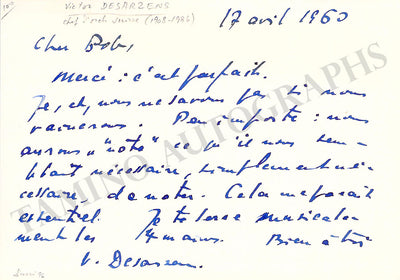 Victor DESARZENS
chef d'orch suisse (1908-1986)
17 avril 1960
Cher Bob,
Merci : c'est parfait.
Je, et, nous ne savons pas si nous
vaincrons. Peu importe : nous
aurons "noté" ce qu'il nous sem-
blait nécessaire, simplement né-
cessaire, de noter. Cela me paraît
essentiel. Je te serre musicale-
ment les 14 mains. Bien à toi
V. Desarzens
TAMINO AUTOGRAPHS